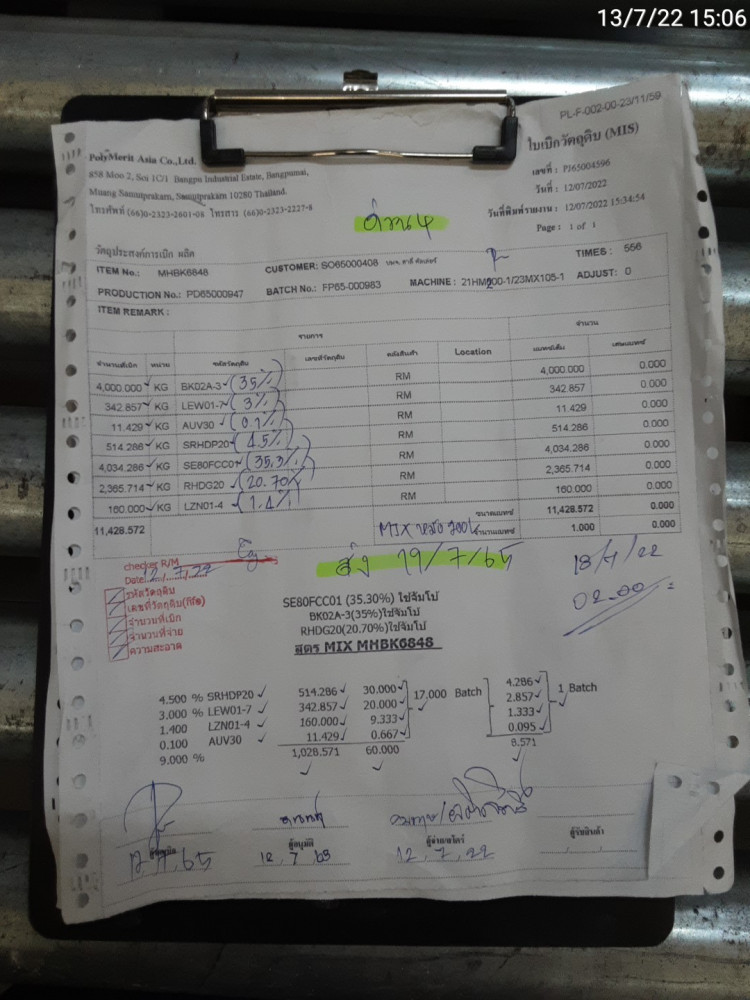 13/7/22 15:06
PL-F-002-00-23/11/59
PolyMerit Asia Co.,Ltd.
858 Moo 2, Soi 1C/1 Bangpu Industrial Estate, Bangpumai,
Muang Samutprakarn, Samutprakarn 10280 Thailand.
โทรศัพท์ (66)0-2323-2601-08 โทรสาร (66)0-2323-2227-8
ใบเบิกวัตถุดิบ (MIS)
เลขที่ : PI65004596
วันที่ : 12/07/2022
วันที่พิมพ์รายงาน : 12/07/2022 15:34:54
Page : 1 of 1
ด่วน
วัตถุประสงค์การเบิก ผลิต
ITEM No.: MHBK6848 CUSTOMER: SO65000408 TIMES: 556
PRODUCTION No.: PD65000947 BATCH No.: FP65-000983 MACHINE : 21HM200-1/23MX105-1 ADJUST: 0
ITEM REMARK :
รายการ จำนวน
จำนวนที่เบิก หน่วย รหัสวัตถุดิบ เลขที่วัตถุดิบ คลังสินค้า Location แบทช์เต็ม เศษแบทช์
4,000.000 KG BK02A-3 (35%) RM 4,000.000 0.000
342.857 KG LEW01-7 (3%) RM 342.857 0.000
11.429 KG AUV30 (0.1%) RM 11.429 0.000
514.286 KG SRHDP20 (4.5%) RM 514.286 0.000
4,034.286 KG SE80FCC01 (35.3%) RM 4,034.286 0.000
2,365.714 KG RHDG20 (20.70%) RM 2,365.714 0.000
160.000 KG LZN01-4 (1.4%) RM 160.000 0.000
11,428.572 ขนาดแบทช์ 11,428.572 0.000
MIX จำนวนแบทช์ 1.000 0.000
checker R/M
Date 12/7/22
รหัสวัตถุดิบ
เลขที่วัตถุดิบ(กีโล)
จำนวนที่เบิก
จำนวนที่จ่าย
ความสะอาด
ส่ง 19/7/65
18/7/22
02.00
SE80FCC01 (35.30%) ใช่จัมโบ้
BK02A-3(35%)ใช่จัมโบ้
RHDG20(20.70%)ใช่จัมโบ้
สูตร MIX MHBK6848
4.500 % SRHDP20 514.286 30.000 4.286
3.000 % LEW01-7 342.857 20.000 17.000 Batch 2.857 1 Batch
1.400 LZN01-4 160.000 9.333 1.333
0.100 AUV30 11.429 0.667 0.095
9.000 % 1,028.571 60.000 8.571
ผู้อนุมัติ ผู้รับสินค้า
12, 7, 65 12, 7, 65 12, 7, 22